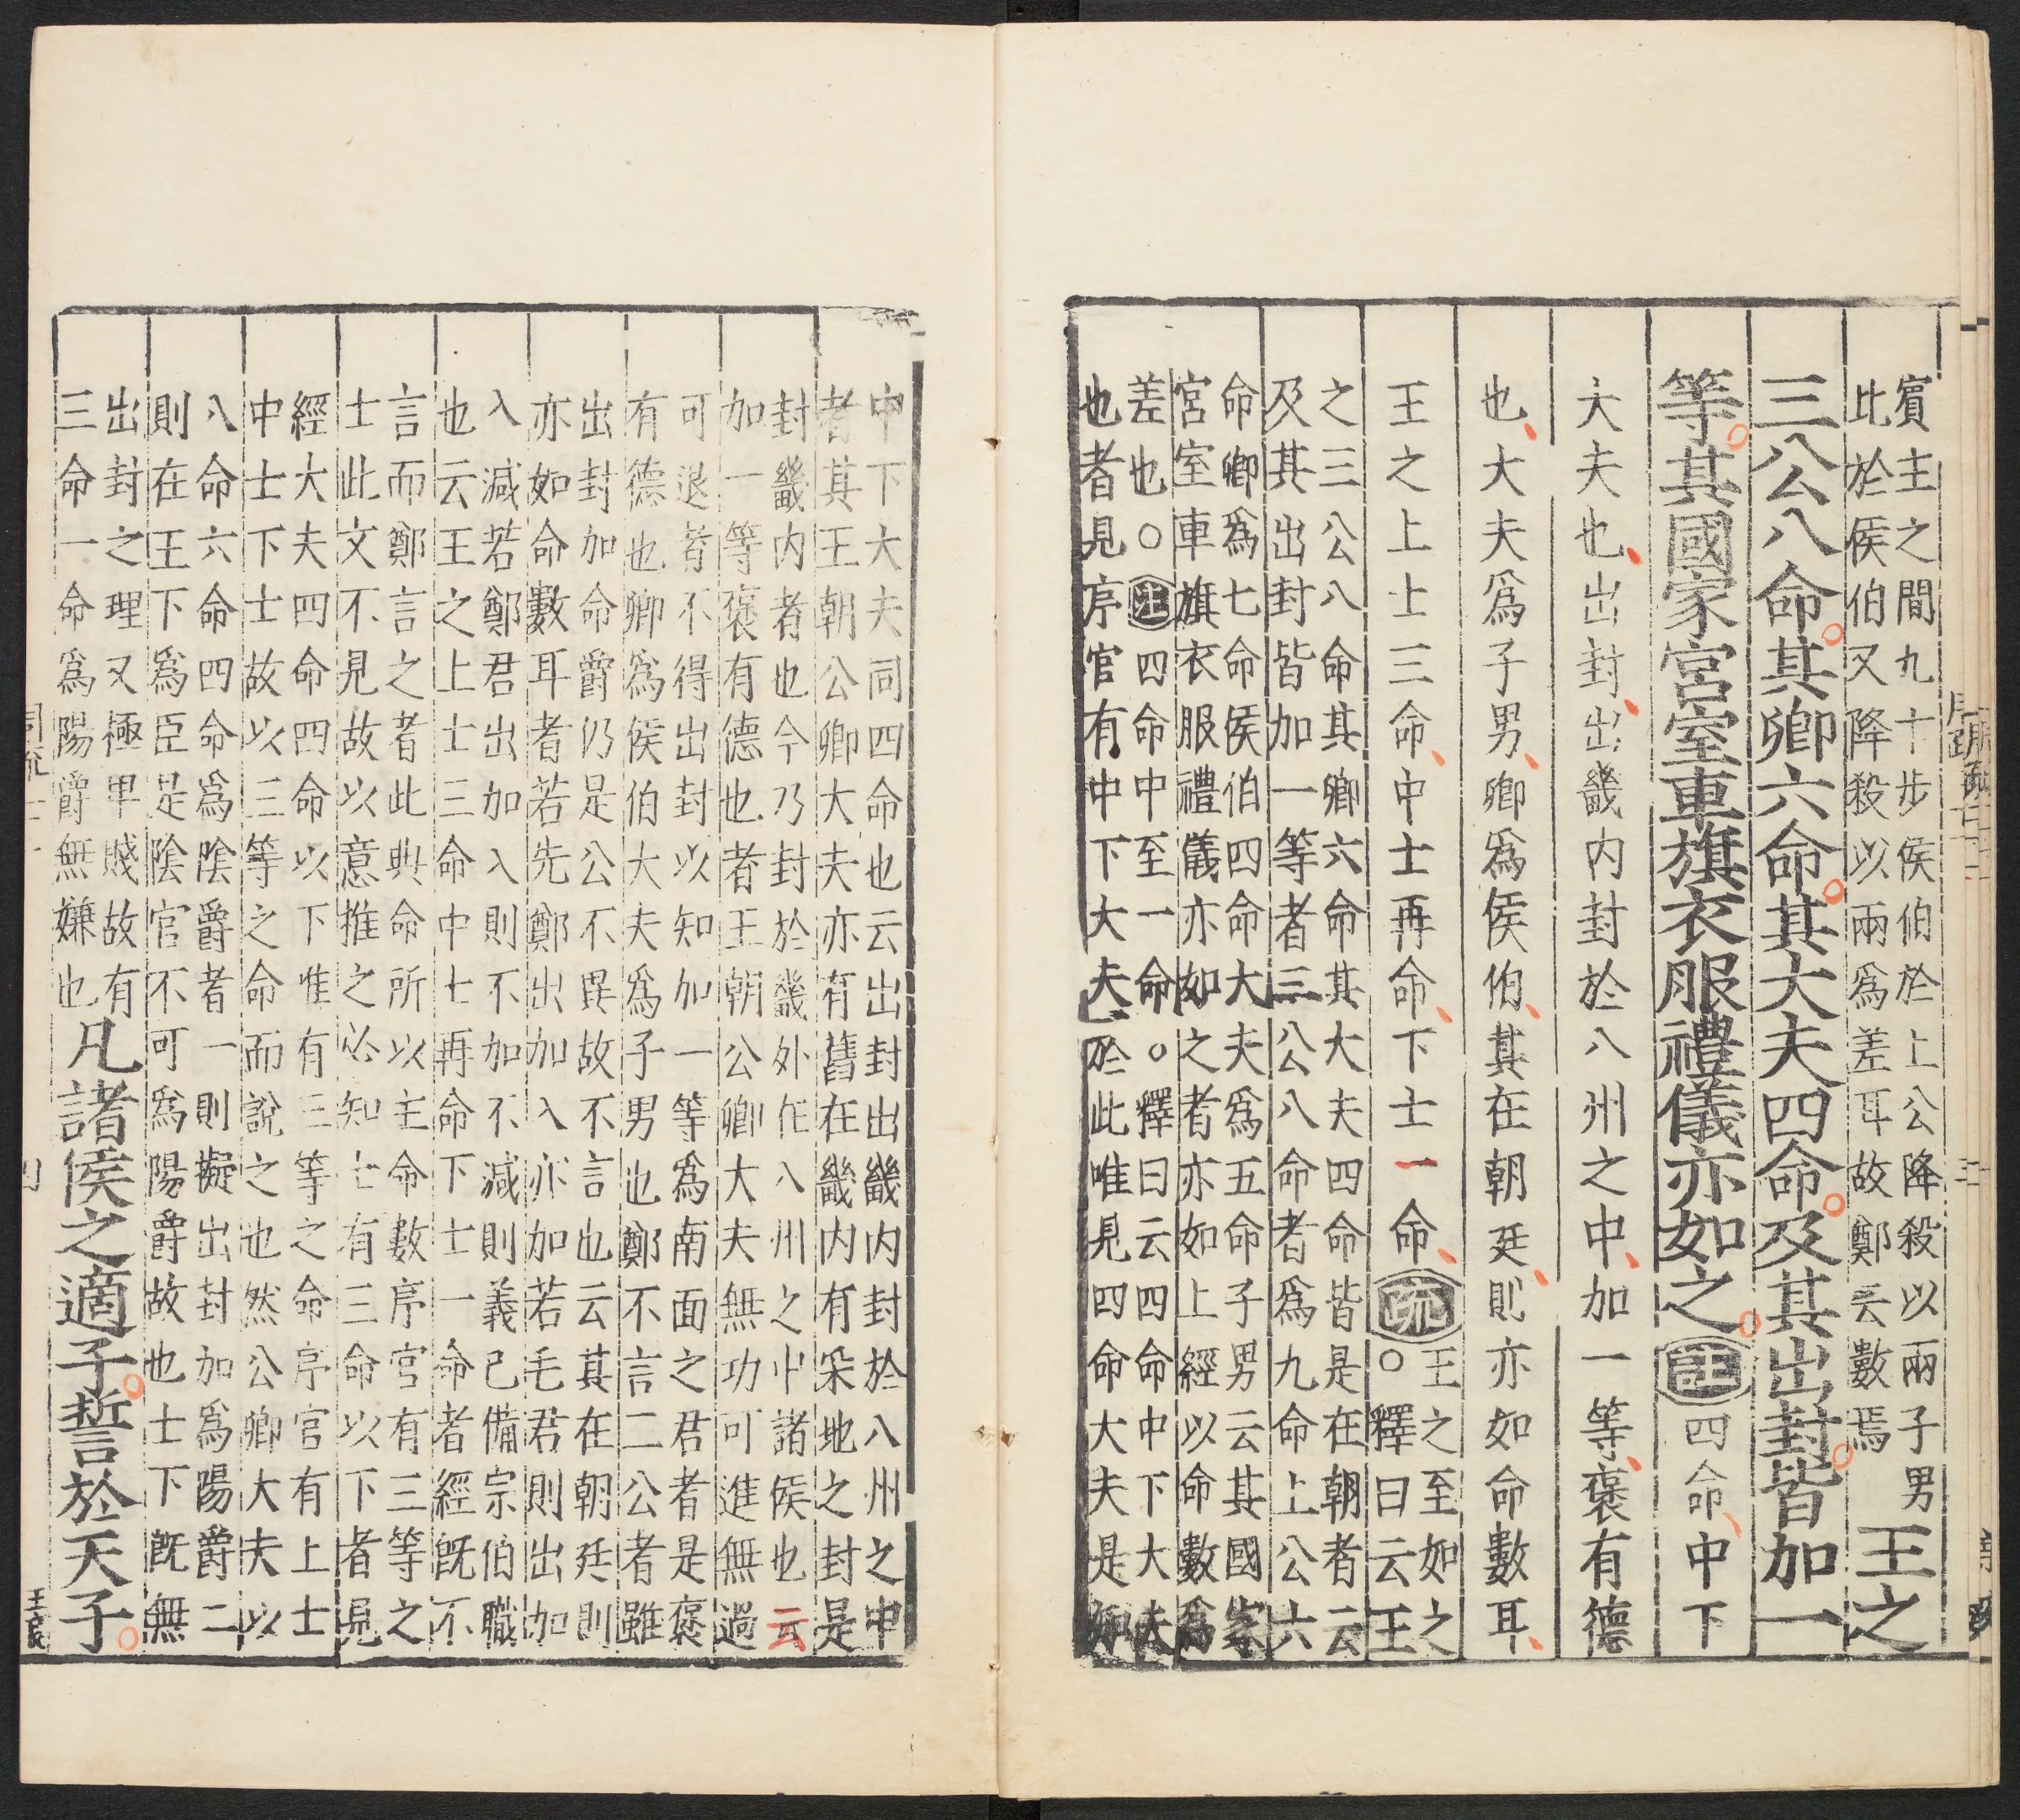 賓主之間九十步侯伯於上公降殺以兩子男
比於侯伯又降殺以兩爲差耳故鄭云數焉
王之
三公八命其卿六命其大夫四命及其出封皆加一
等其國家宮室車旗衣服禮儀亦如之
註
四命中下
大夫也出封出畿内封於八州之中加一等褒有德
也大夫爲子男卿爲侯伯其在朝廷則亦如命數耳
王之上士三命中士再命下士一命
疏
王之至如之
○釋曰云王
之三公八命其卿六命其大夫四命皆是在朝者云
及其出封皆加一等者三公八命者爲九命上公六
命卿爲七命侯伯四命大夫爲五命子男云其國家
宮室車旗衣服禮儀亦如之者亦如上經以命數爲
差也○註四命中至一命○釋曰云四命中下大夫
也者見序官有中下大夫於此唯見四命大夫是知
中下大夫同四命也云出封出畿内封於八州之中
者其王朝公卿大夫亦有舊在畿内有采地之封是
封畿内者也今乃封於畿外在八州之中諸侯也云
加一等褒有德也者王朝公卿大夫無功可進無過
可退者不得出封以知加一等爲南面之君者是褒
有德也卿爲侯伯大夫爲子男也鄭不言二公者雖
出封加命爵仍是公不異故不言也云其在朝廷則
亦如命數耳者若先鄭出加入亦加若毛君則出加
入減若鄭君出加入則不加不減則義已備宗伯職
也云王之上士三命中士再命下士一命者經既不
言而鄭言之者此典命所以主命數序官有三等之
士此文不見故以意推之必知士有三命以下者見
經大夫四命四命以下唯有三等之命序官有上士
中士下士故以三等之命而說之也然公卿大夫以
八命六命四命爲陰爵者一則擬出封加爲陽爵二
則在王下爲臣是陰官不可爲陽爵故也士下既無
出封之理又極卑賤故有
三命一命爲陽爵無嫌也
凡諸侯之適子誓於天子